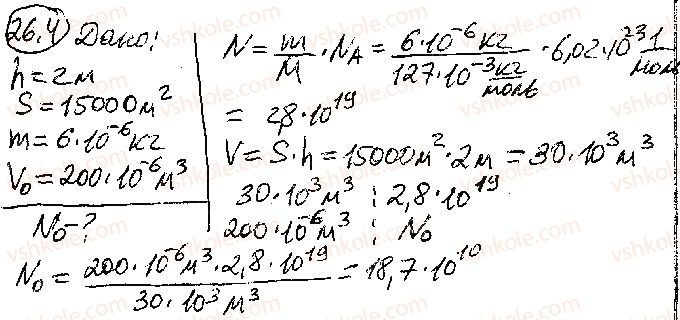 26.4 Дано:
h = 2м
S = 15000м²
m = 6·10⁻⁶кг
V₀ = 200·10⁻⁶м³
N₀ - ?
N = m/M · N_A = 6·10⁻⁶кг / 127·10⁻³ кг/моль · 6,02·10²³ 1/моль
= 2,8·10¹⁹
V = S·h = 15000м²·2м = 30·10³м³
30·10³м³ : 2,8·10¹⁹
200·10⁻⁶м³ : N₀
N₀ = 200·10⁻⁶м³·2,8·10¹⁹ / 30·10³м³ = 18,7·10¹⁰
vshkole.com